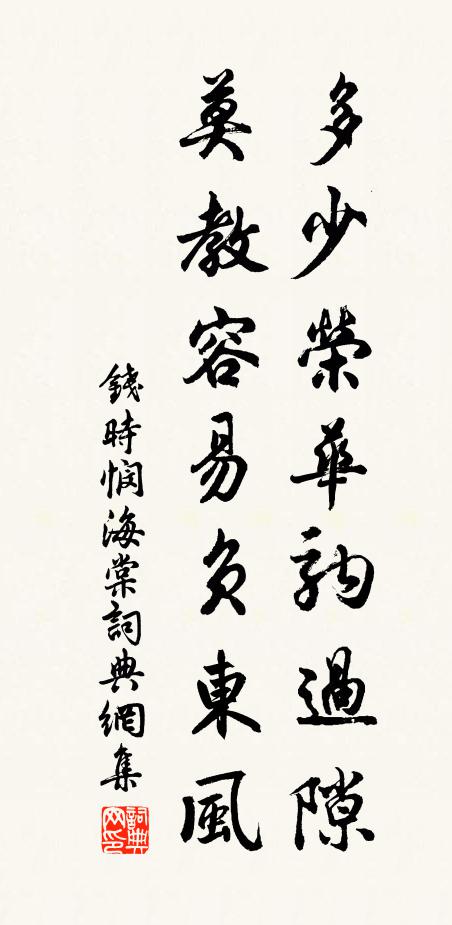 多少榮華駒過隙
莫教容易負東風
錢時憫海棠詞典網集
詞典網印